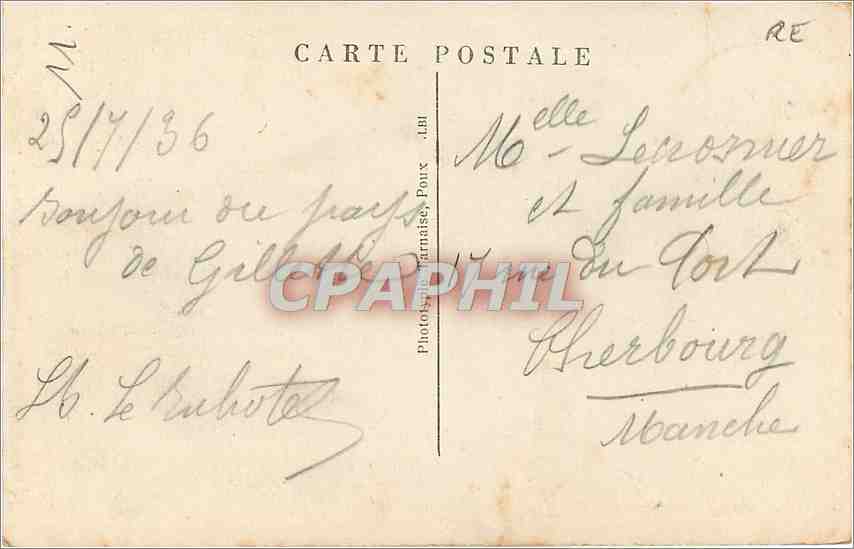 RE
11.
CARTE POSTALE
25/7/36
Bonjour du pays
de Gillette
Melle Lecrosnier
et famille
17 rue du Port
Cherbourg
Manche
Phototypie Tarnaise, Poux .LBI
CPAPHIL